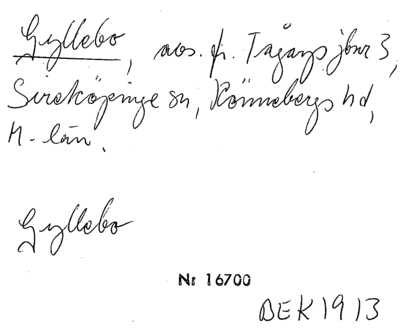 Gyllebo, avs. fr. Tågarps jbnr 3,
Sireköpinge sn, Rönnebergs hd,
M-län.
Gyllebo
Nr 16700
BEK 1913